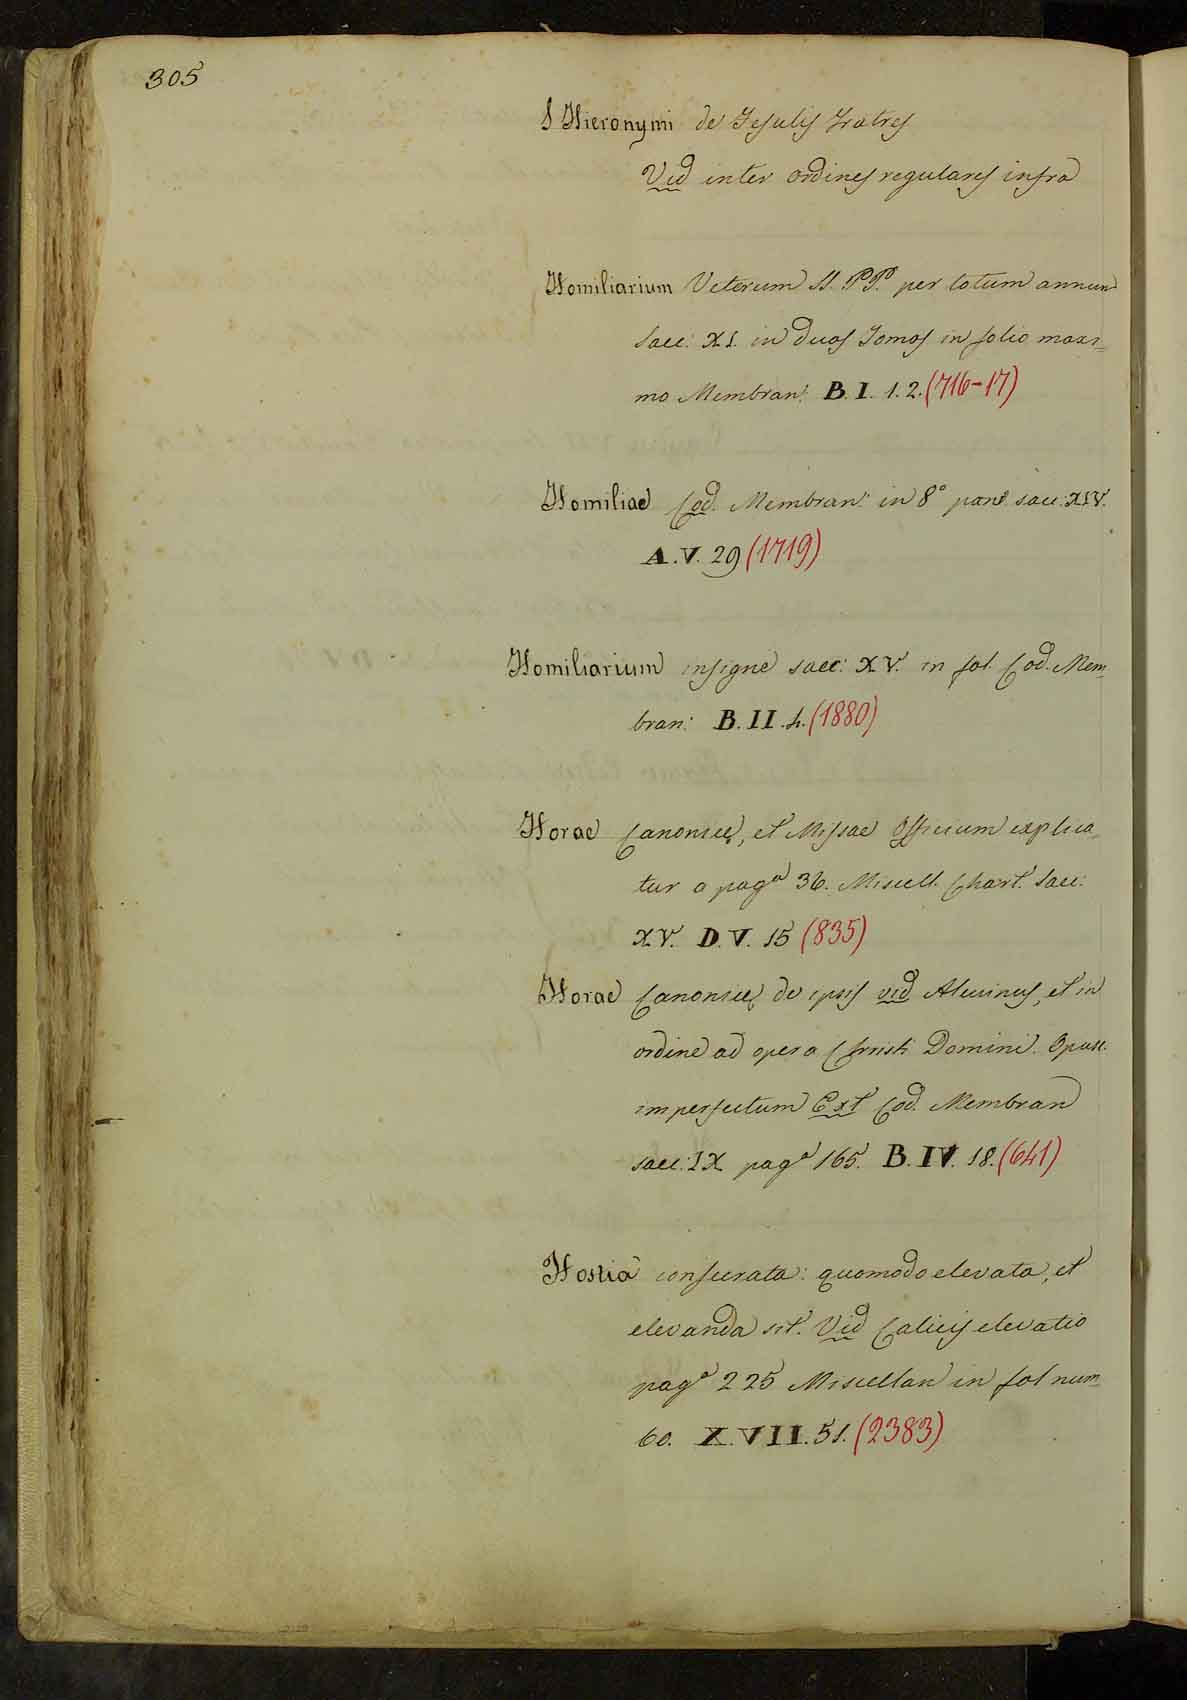 305
S Hieronymi de Fesulis Fratres
Vid inter ordines regulares infra
Homiliarium Veterum SS. PP. per totum annum
saec: XI. in duos Tomos in folio maxi=
mo Membran: B. I. 1. 2. (716-17)
Homiliae Cod. Membran: in 8° parv saec: XIV.
A. V. 29 (1719)
Homiliarium insigne saec: XV. in fol. Cod. Mem=
bran: B. II. 4. (1880)
Horae Canonicę, et Missae Officium explica=
tur a pagª 36. Miscell. Chart. saec:
XV. D. V. 15 (835)
Horae Canonicę de ipsis vid Alcuinus, et in
ordine ad opera Christi Domini. Opusc.
imperfectum Ext Cod. Membran
saec: IX pagª 165. B. IV. 18. (641)
Hostia consecrata: quomodo elevata, et
elevanda sit. Vid Calicis elevatio
pagª 225 Miscellan in fol num=
60. X. VII. 51. (2383)